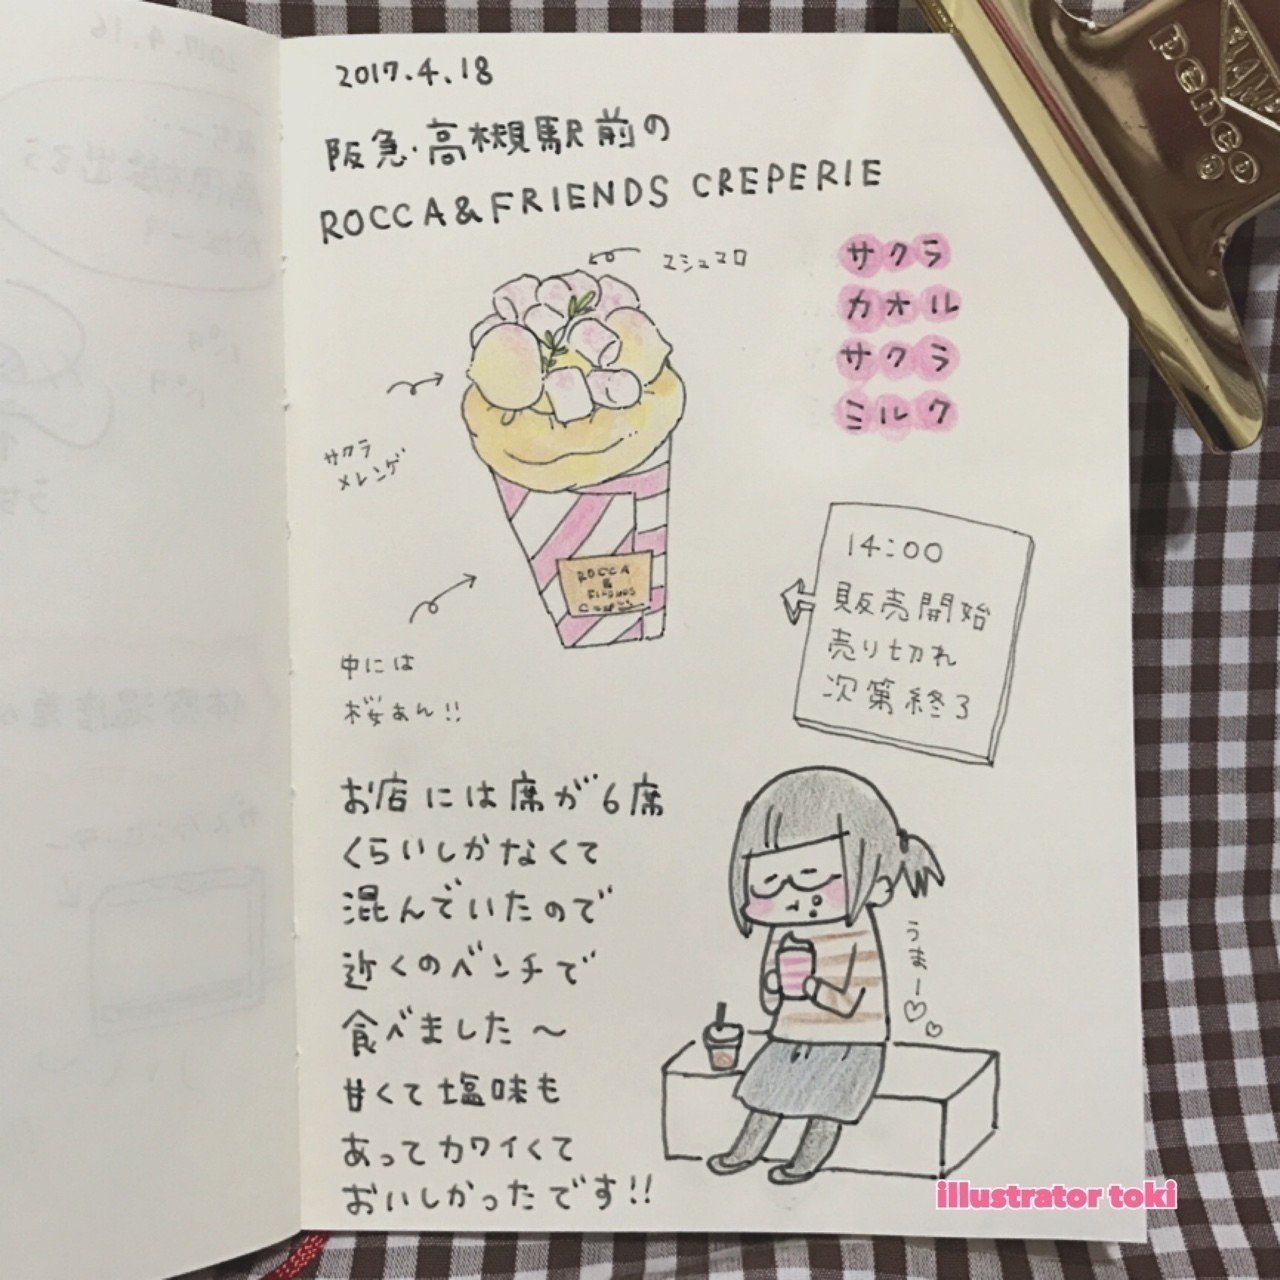 2017.4.18
阪急・高槻駅前の
ROCCA&FRIENDS CREPERIE
マシュマロ
サクラ
カオル
サクラ
ミルク
サクラ
メレンゲ
ROCCA
&
FRIENDS
中には
桜あん!!
14:00
販売開始
売り切れ
次第終了
お店には席が6席
くらいしかなくて
混んでいたので
近くのベンチで
食べました〜
甘くて塩味も
あってカワイくて
おいしかったです!!
うまー♡♡
illustrator toki
penco
2017.4.16